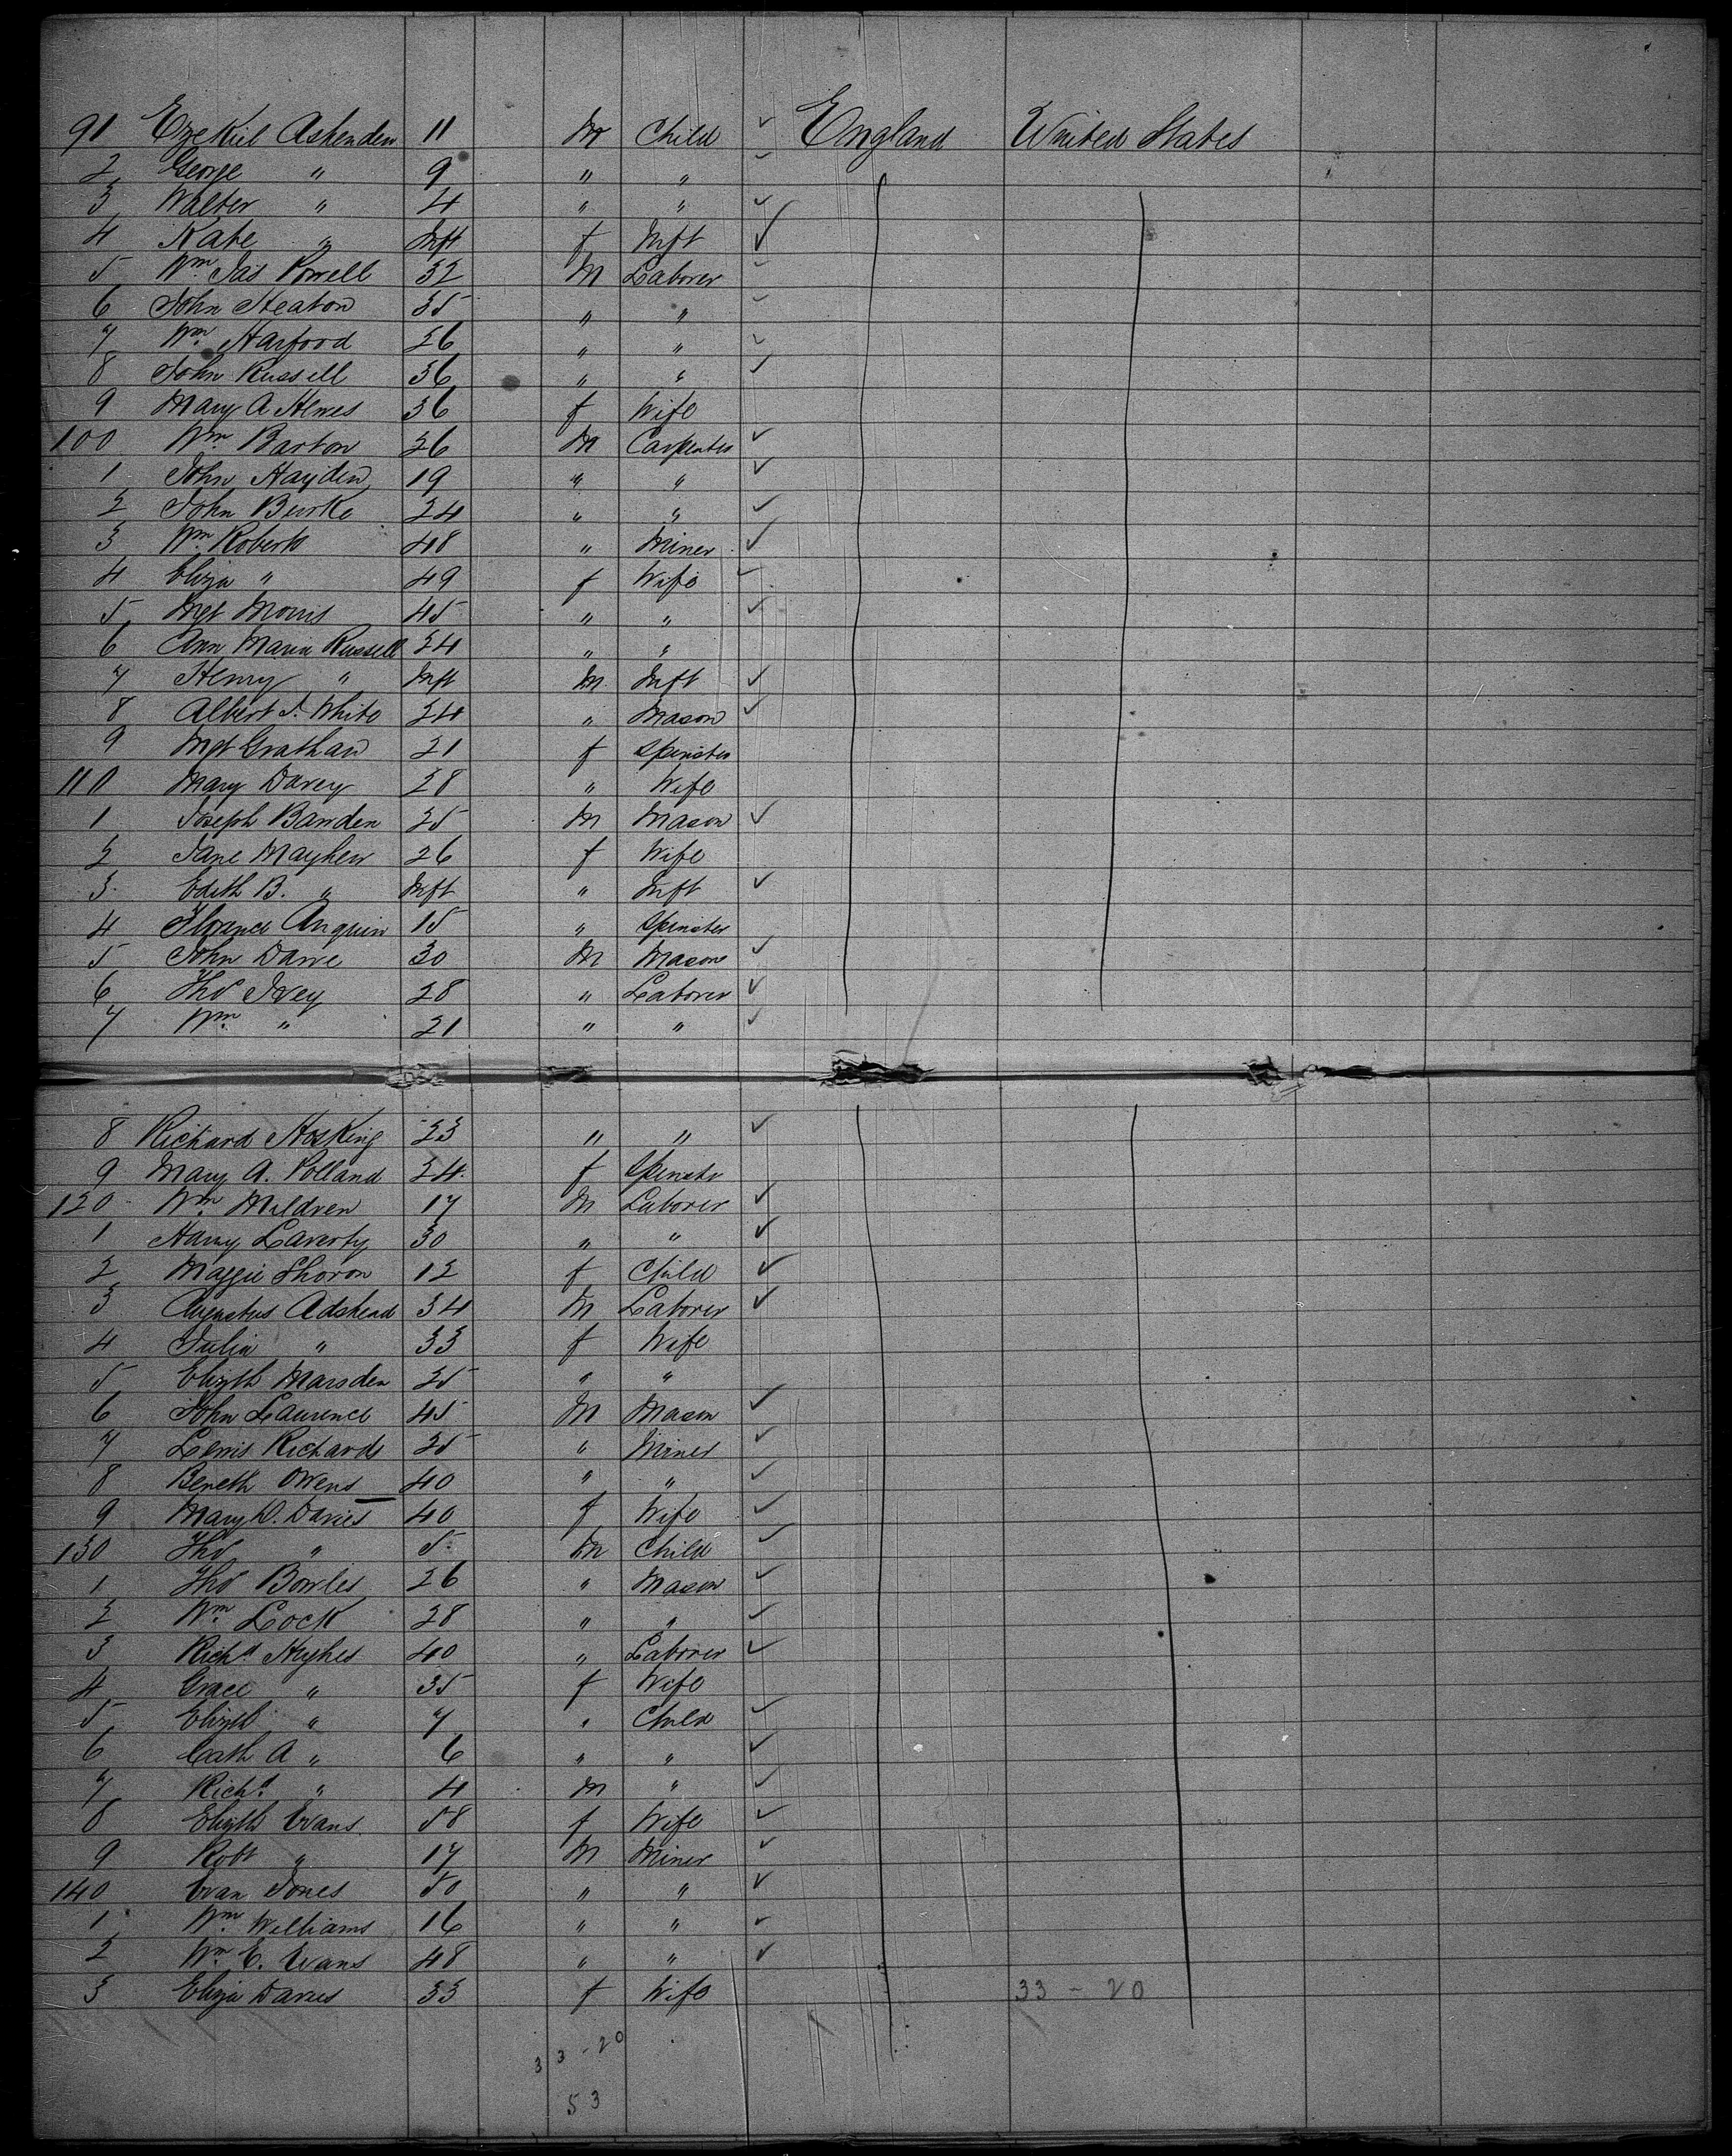 91 Ezekiel Ashenden 11 M Child ✓ England United States
2 George " 9 " " ✓
3 Walter " 4 " " ✓
4 Kate " Inft f Inft ✓
5 Wm Jas Powell 32 M Laborer ✓
6 John Heaton 35 " " ✓
7 Wm Harford 26 " " ✓
8 John Russell 36 " " ✓
9 Mary A 36 f Wife
100 Wm Barton 26 M Carpenter ✓
1 John Hayden 19 " " ✓
2 John Burke 24 " " ✓
3 Wm Roberts 48 " Miner ✓
4 Eliza " 49 f Wife ✓
5 Mgt Morris 45 " " ✓
6 Ann Maria Russell 24 " "
7 Henry " Inft M Inft ✓
8 Albert J. White 24 " Mason ✓
9 Mgt 21 f Spinster
110 Mary Davey 28 " Wife
1 Joseph Bawden 25 M Mason ✓
2 Jane Mayhew 26 f Wife
3 Edith B. " Inft " Inft ✓
4 Florence Anquin 15 " Spinster
5 John Dawe 30 M Mason ✓
6 Thos Ivey 28 " Laborer ✓
7 Wm " 21 " " ✓
8 Richard Hosking 23 " " ✓
9 Mary A. Polland 24 f Spinster
120 Wm Mildren 17 M Laborer ✓
1 Harry Laverty 30 " " ✓
2 Maggie 12 f Child ✓
3 Augustus Adshead 34 M Laborer ✓
4 Julia " 33 f Wife
5 Elizth Marsden 25 " "
6 John Laurence 45 M Mason ✓
7 Lewis Richards 25 " Miner ✓
8 Beneth Owens 40 " " ✓
9 Mary D. Davies 40 f Wife ✓
130 Thos " 5 M Child ✓
1 Thos Bowles 26 " Mason ✓
2 Wm Lock 28 " " ✓
3 Richd Hughes 40 " Laborer ✓
4 Grace " 35 f Wife
5 Elizth " 7 " Child ✓
6 Cath A " 6 " " ✓
7 Richd " 4 M " ✓
8 Elizth Evans 58 f Wife ✓
9 Robt " 17 M Miner ✓
140 Evan Jones 50 " " ✓
1 Wm Williams 16 " " ✓
2 Wm E. Evans 48 " " ✓
3 Eliza Davies 33 f Wife 33 - 20
33 - 20
53